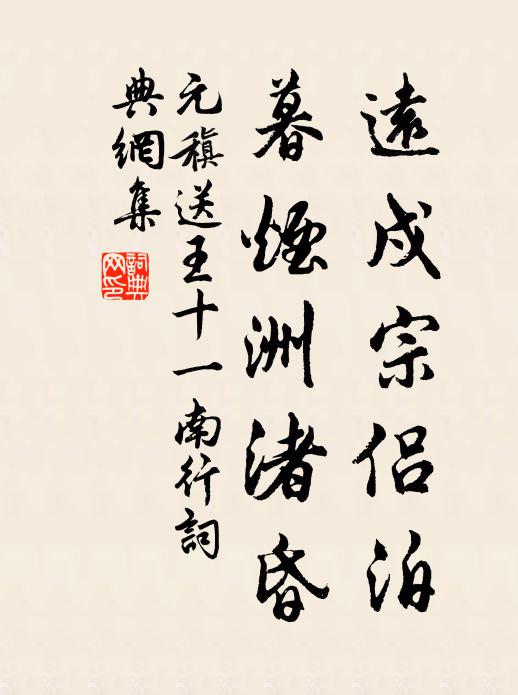 遠戍宗侣泊
暮煙洲渚昏
元稹送王十一南行詞
典網集
詞典网印